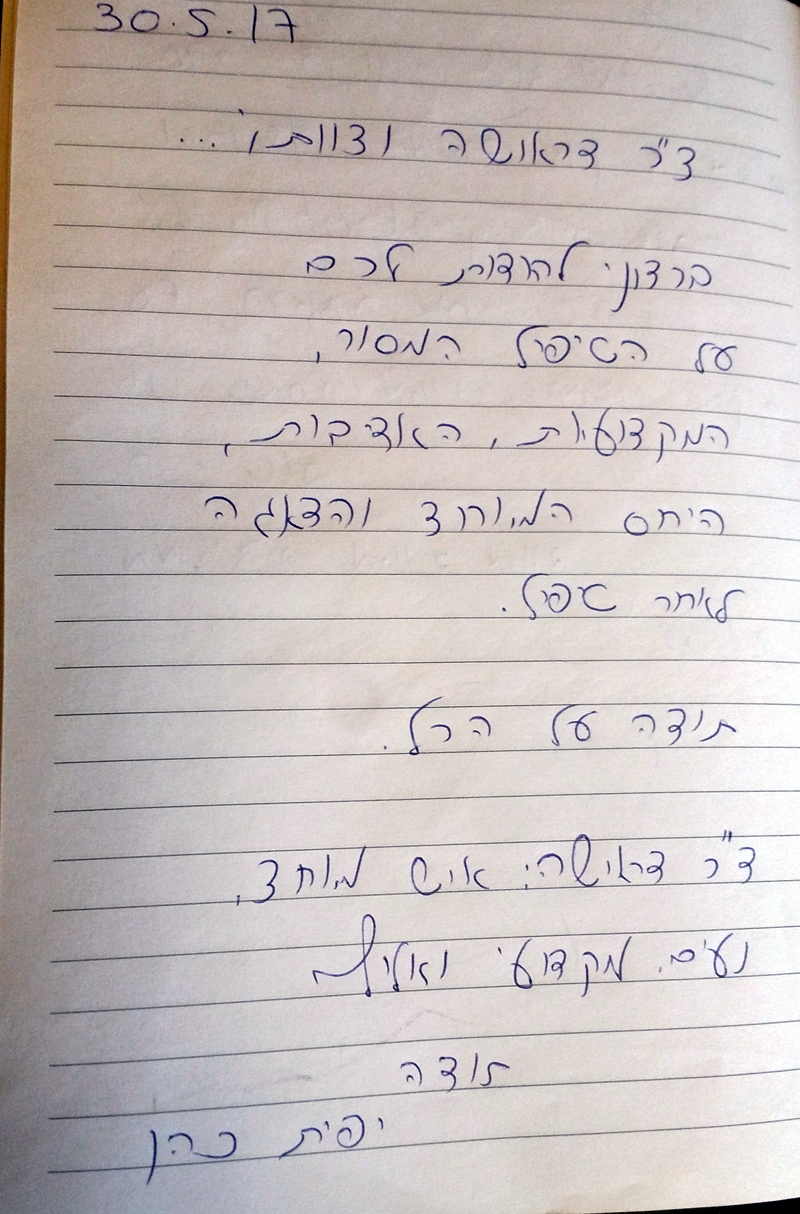 30.5.17
ד"ר דראושה וצוותו,...
ברצוני להודות לכם
על הטיפול המסור,
המקצועיות, האדיבות,
היחס המיוחד והדאגה
לאחר טיפול.
תודה על הכל.
ד"ר דראושה: איש מיוחד,
נעים, מקצועי ואליף
תודה
יפית כהן